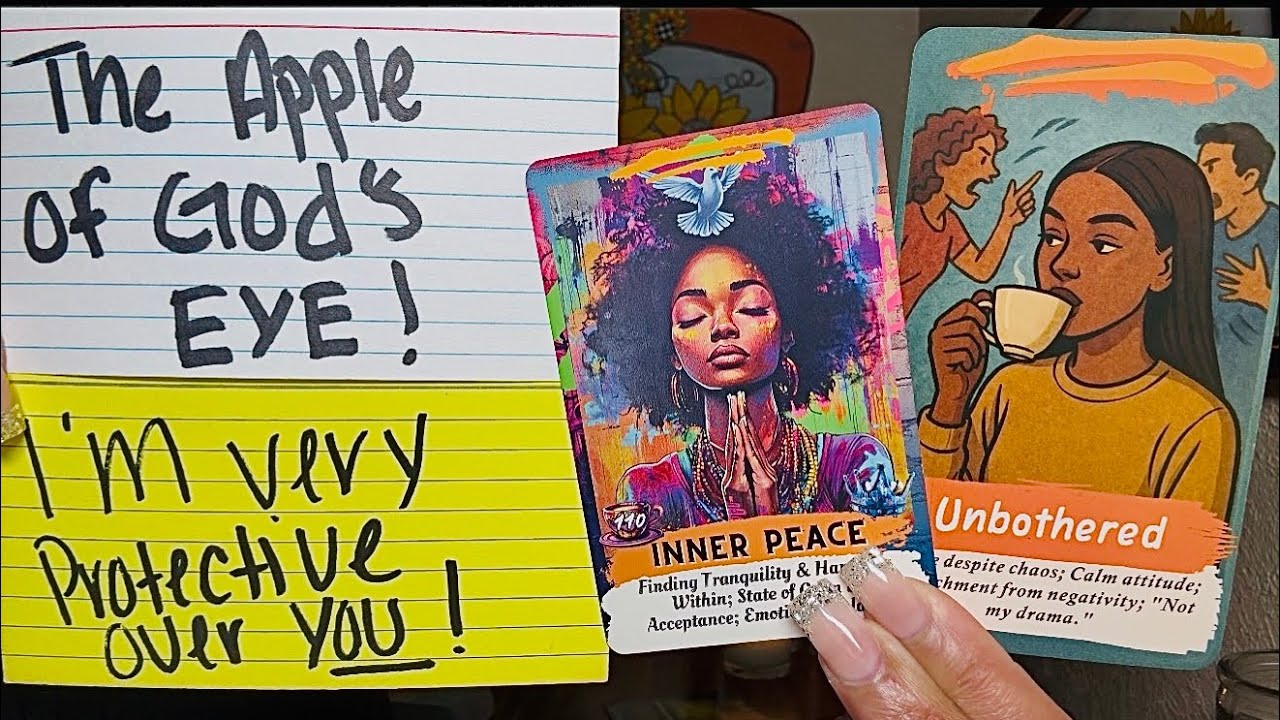 The Apple
of God's
EYE!
I'm very
Protective
over YOU!
110
INNER PEACE
Finding Tranquility &
Within; State of
Acceptance;
Unbothered
despite chaos; Calm attitude;
from negativity; "Not
my drama."